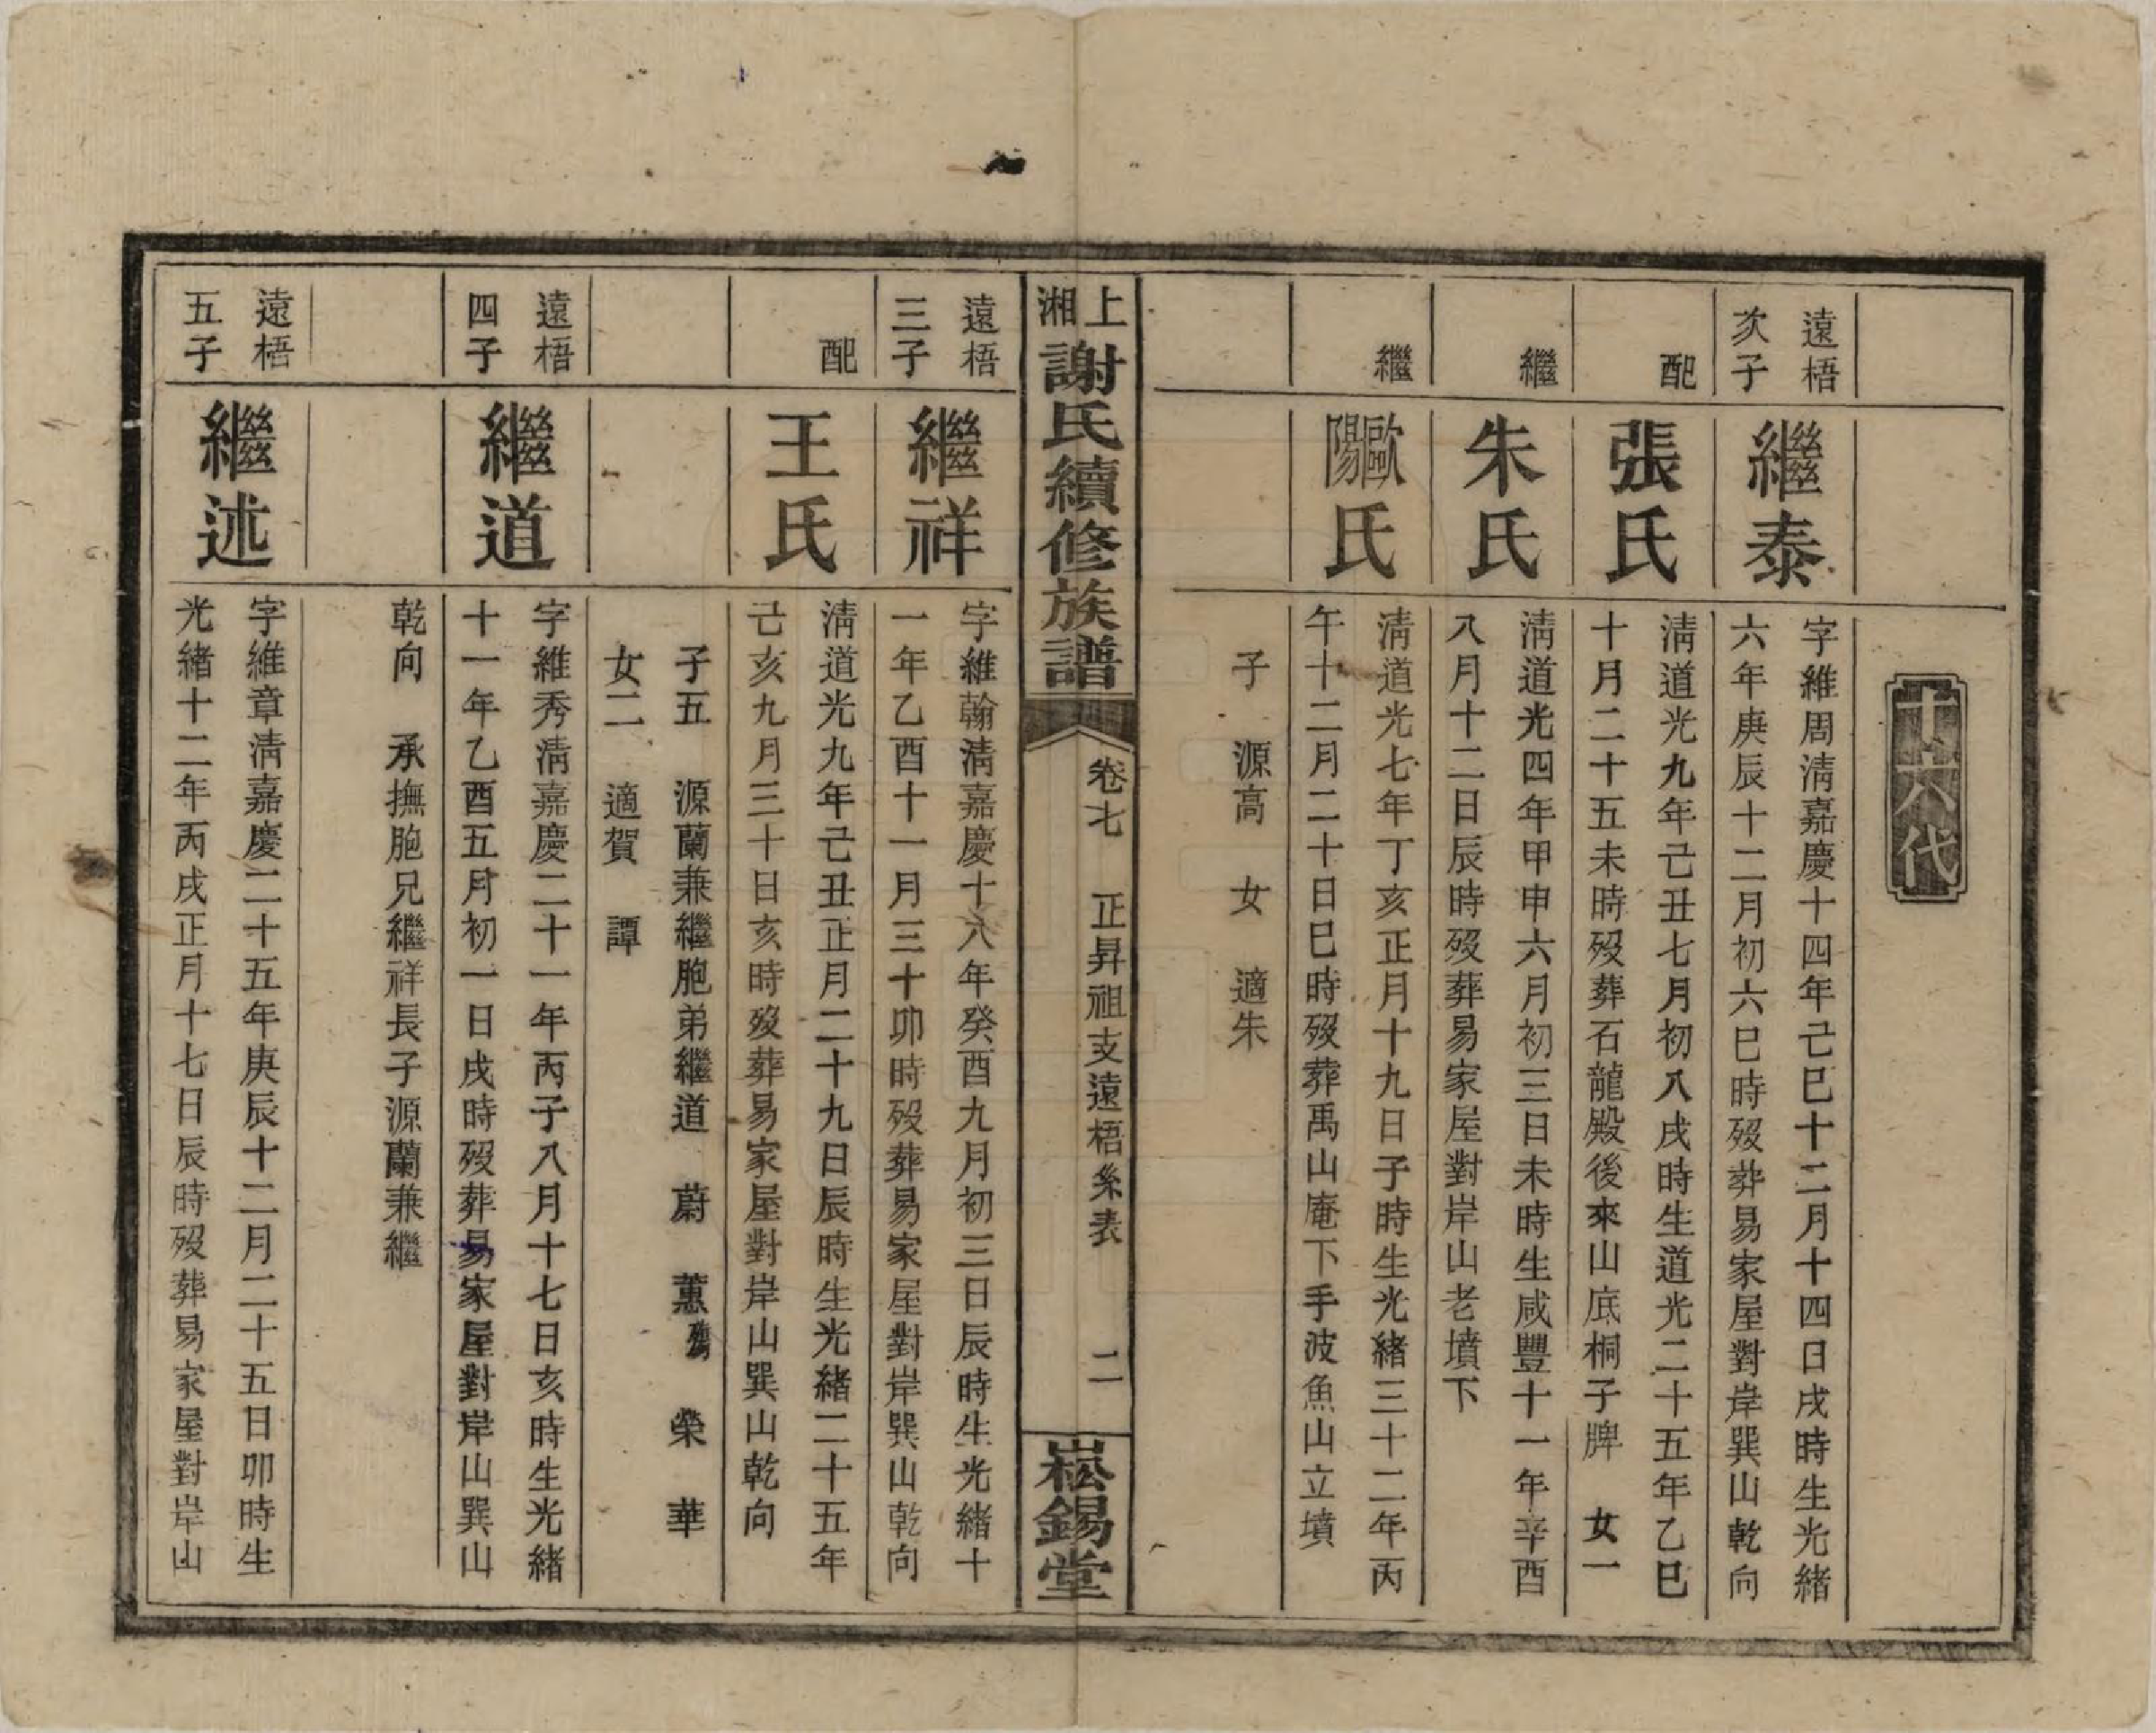 十六代
遠梧
次子
繼泰
字維周淸嘉慶十四年己巳十二月十四日戌時生光緒
六年庚辰十二月初六巳時歿葬易家屋對岸巽山乾向
配
張氏
淸道光九年己丑七月初八戌時生道光二十五年乙巳
十月二十五未時歿葬石龍殿後來山底桐子牌 女一
繼
朱氏
淸道光四年甲申六月初三日未時生咸豐十一年辛酉
八月十二日辰時歿葬易家屋對岸山老墳下
繼
歐陽氏
淸道光七年丁亥正月十九日子時生光緒三十二年丙
午十二月二十日巳時歿葬禹山庵下手波魚山立墳
子 源高 女 適朱
上湘謝氏續修族譜
卷七 正昇祖支遠梧系表 二
崧錫堂
遠梧
三子
繼祥
字維翰淸嘉慶十八年癸酉九月初三日辰時生光緒十
一年乙酉十一月三十卯時歿葬易家屋對岸巽山乾向
配
王氏
淸道光九年己丑正月二十九日辰時生光緒二十五年
己亥九月三十日亥時歿葬易家屋對岸山巽山乾向
子五 源蘭兼繼胞弟繼道 蔚 蕙殤 榮 華
女二 適賀 譚
遠梧
四子
繼道
字維秀淸嘉慶二十一年丙子八月十七日亥時生光緒
十一年乙酉五月初一日戌時歿葬易家屋對岸山巽山
乾向 承撫胞兄繼祥長子源蘭兼繼
遠梧
五子
繼述
字維章淸嘉慶二十五年庚辰十二月二十五日卯時生
光緒十二年丙戌正月十七日辰時歿葬易家屋對岸山